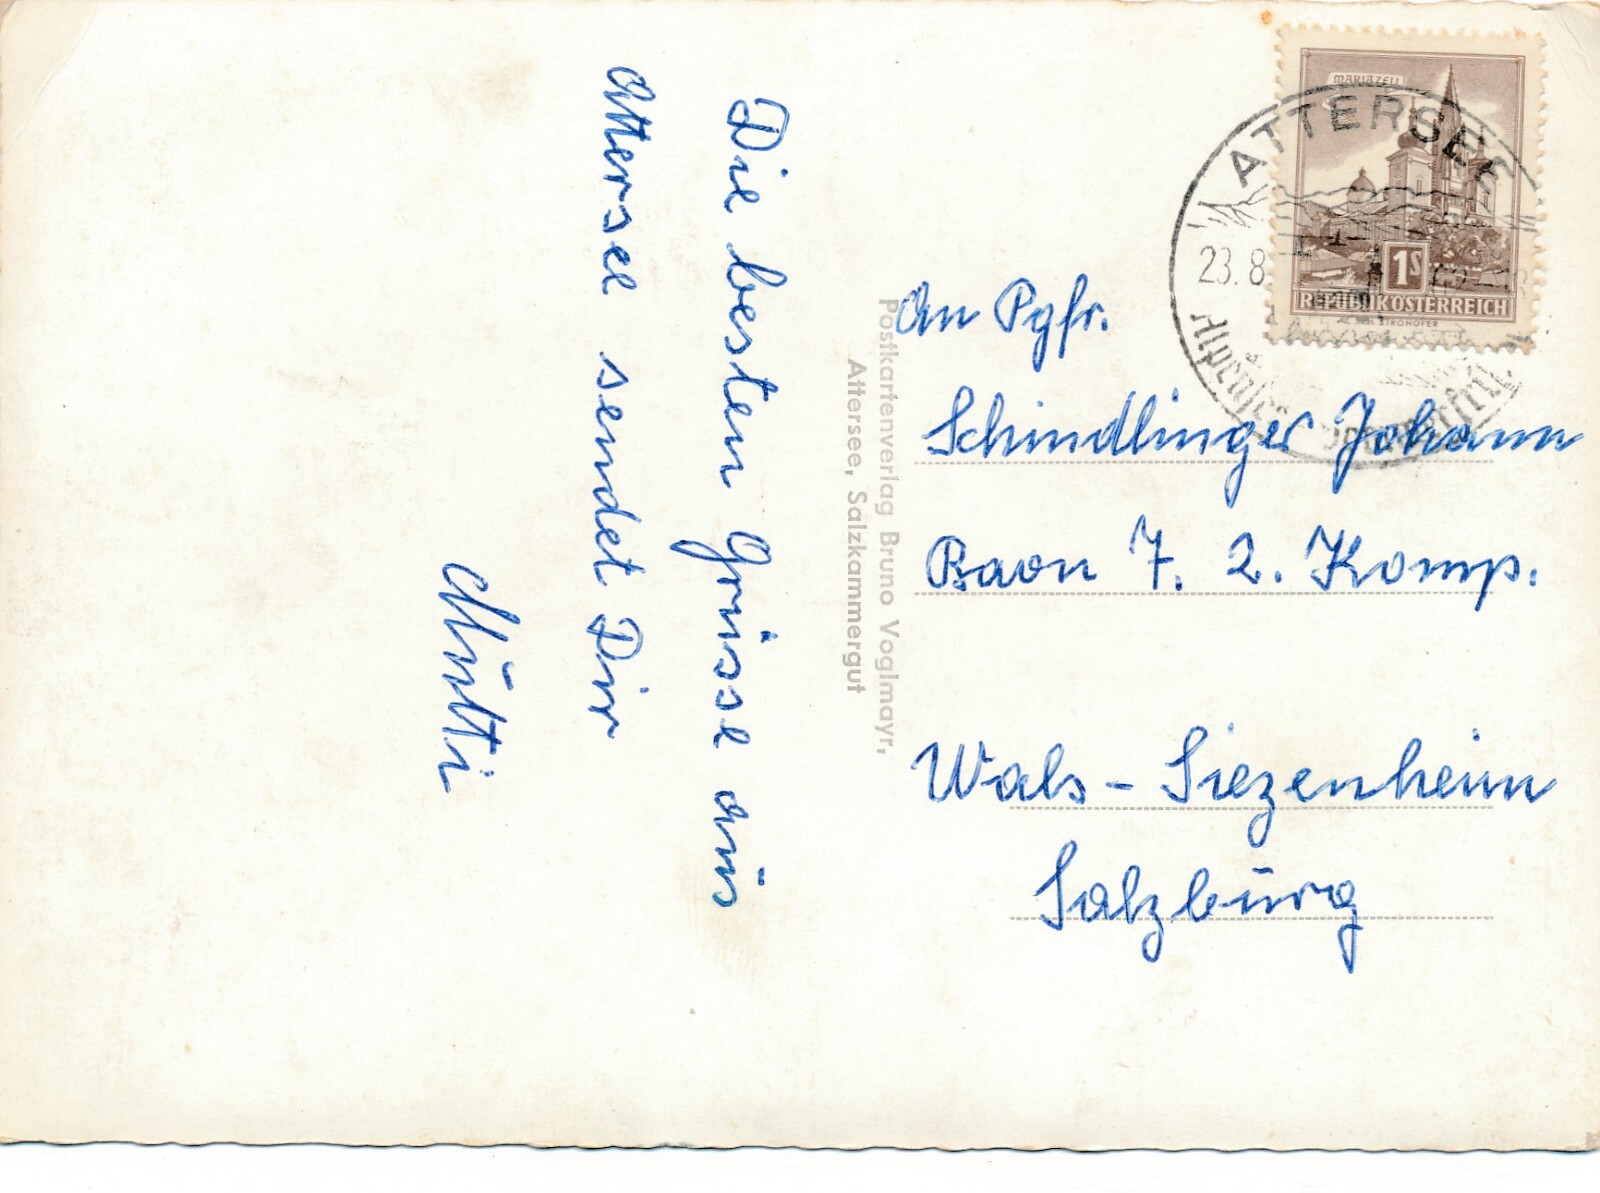 Die besten Grüsse aus
Attersee sendet Dir
Mutti
Postkartenverlag Bruno Voglmayr,
Attersee, Salzkammergut
MARIAZELL
1S
REPUBLIK ÖSTERREICH
STROHOFER
ATTERSEE
23.8
An Pgfr.
Schindlinger Johann
Baon 7. 2. Komp.
Wals - Siezenheim
Salzburg